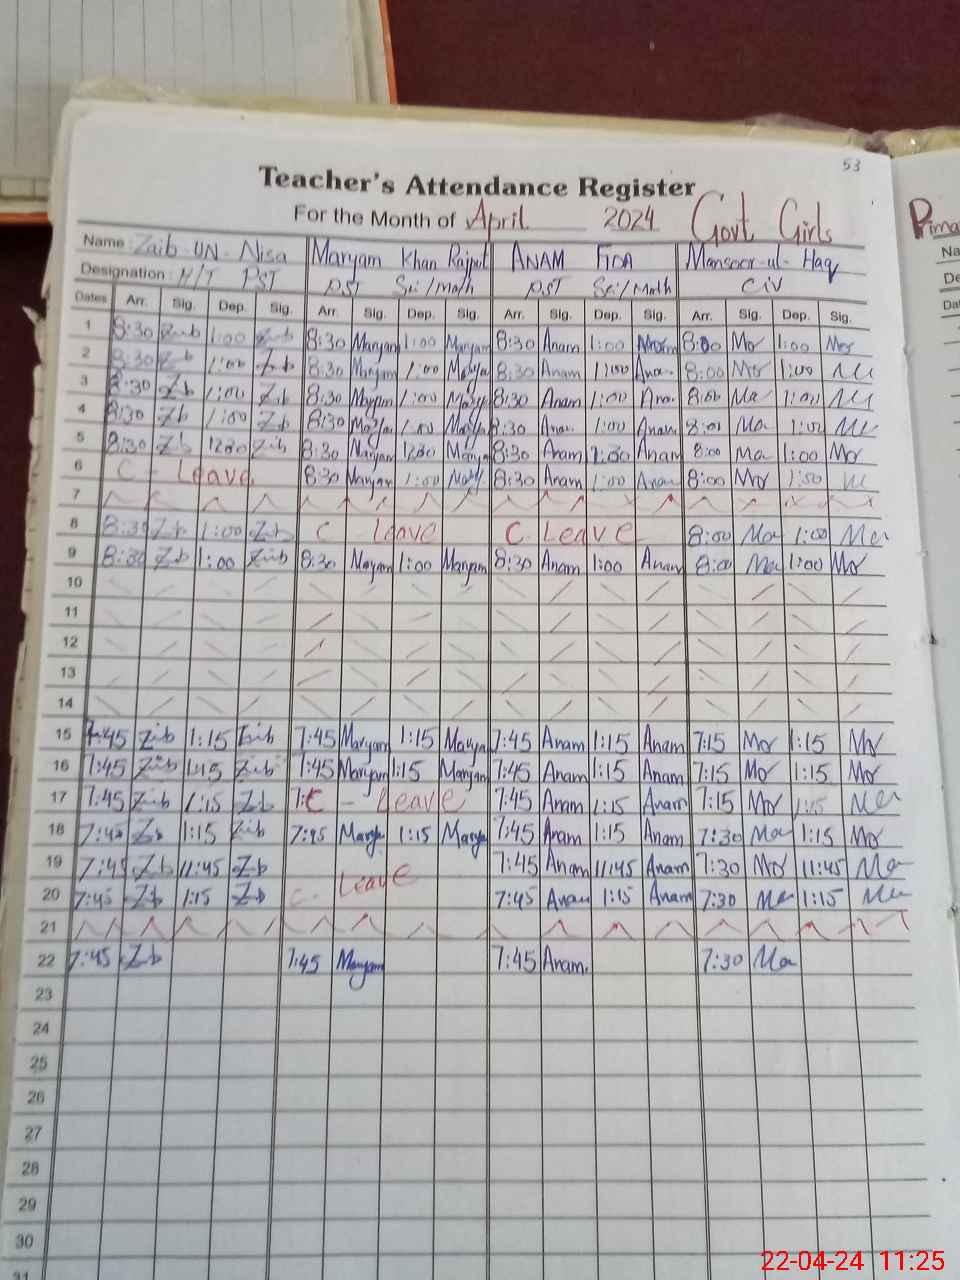 53
Teacher's Attendance Register
For the Month of April 2024 Govt Girls Prima
Name: Zaib-UN-Nisa Maryam Khan Rajput ANAM FIDA Mansoor-ul-Haq Na
Designation: H/T PST PST Sci/Math PST Sci/Math Civ De
Dates Arr. Sig. Dep. Sig. Arr. Sig. Dep. Sig. Arr. Sig. Dep. Sig. Arr. Sig. Dep. Sig. Dat
1 8:30 Zaib 1:00 Zaib 8:30 Maryam 1:00 Maryam 8:30 Anam 1:00 Anam 8:00 Mor 1:00 Mor
2 8:30 Zb 1:00 Zb 8:30 Maryam 1:00 Marya 8:30 Anam 1:00 Ana 8:00 Mor 1:00
3 8:30 Zb 1:00 Zib 8:30 Maryam 1:00 Marya 8:30 Anam 1:00 Ana 8:00 Ma 1:00
4 8:30 Zb 1:00 Zib 8:30 Marya 1:00 Marya 8:30 Anam 1:00 Anam 8:00 Ma 1:00
5 8:30 Zb 1230 Zib 8:30 Maryam 1230 Marya 8:30 Anam Anam 8:00 Ma 1:00 Mor
6 C - Leave 8:30 Maryam 1:00 8:30 Anam 1:00 Anam 8:00 Mor
7
8 8:30 Zb 1:00 Zib C Leave C. Leave 8:00 Ma 1:00 Mar
9 8:30 Zb 1:00 Zaib 8:30 Maryam 1:00 Maryam 8:30 Anam 1:00 Anam 8:00 Ma 1:00 Mor
10
11
12
13
14
15 7:45 Zib 1:15 Zaib 7:45 Maryam 1:15 Marya 7:45 Anam 1:15 Anam 7:15 Mor 1:15 Mor
16 7:45 Zaib 1:15 Zaib 7:45 Maryam 1:15 Maryam 7:45 Anam 1:15 Anam 7:15 Mor 1:15 Mor
17 7:45 Zaib 1:15 Zb 7: C - Leave 7:45 Anam 1:15 Anam 7:15 Mor 1:15 Mar
18 7:45 Zb 1:15 Zaib 7:45 Marya 1:15 Marya 7:45 Anam 1:15 Anam 7:30 Ma 1:15 Mor
19 7:45 Zb 11:45 Zb 7:45 Anam 11:45 Anam 7:30 Mor 11:45 Ma
C. Leave
20 7:45 Zb 1:15 Zb 7:45 Anam 1:15 Anam 7:30 Ma 1:15 Ma
21
22 7:45 Zb 7:45 Maryam 7:45 Anam. 7:30 Ma
23
24
25
26
27
28
29
30
31
22-04-24 11:25